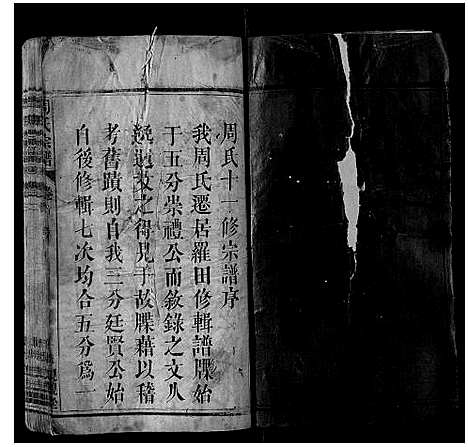 周氏十一修宗譜序
我周氏遷居羅田修輯譜牒始
于五分崇禮公而敘錄之文从
遶過及之得見于故牒藉以稽
考舊蹟則自我三分廷賢公始
自後修輯七次均合五分為一